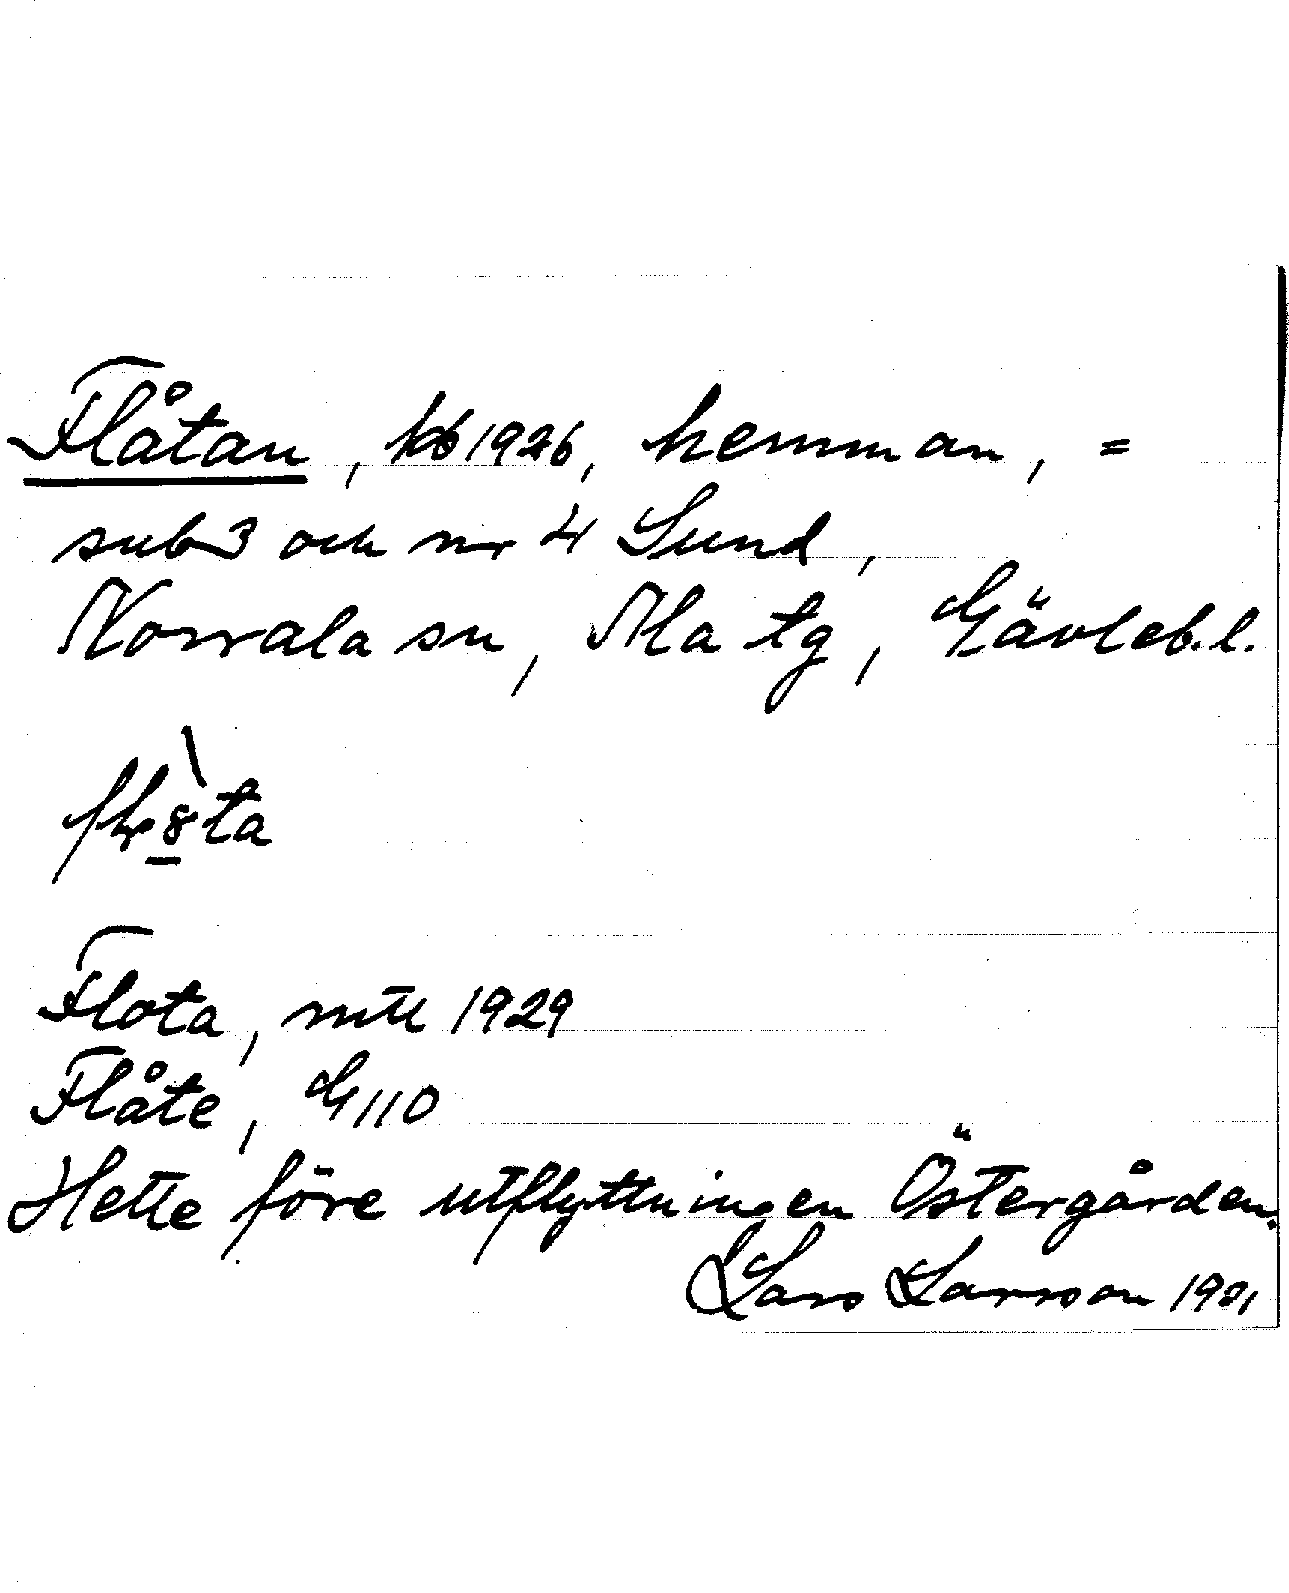 Flåtan, kb 1926, hemman, =
sub 3 och nr 4 Sund,
Norrala sn, Ala tg, Gävleb. l.
Flota, mtl 1929
Flåte, G 110
Hette före utflyttningen Östergården.
Lars Larsson 1981